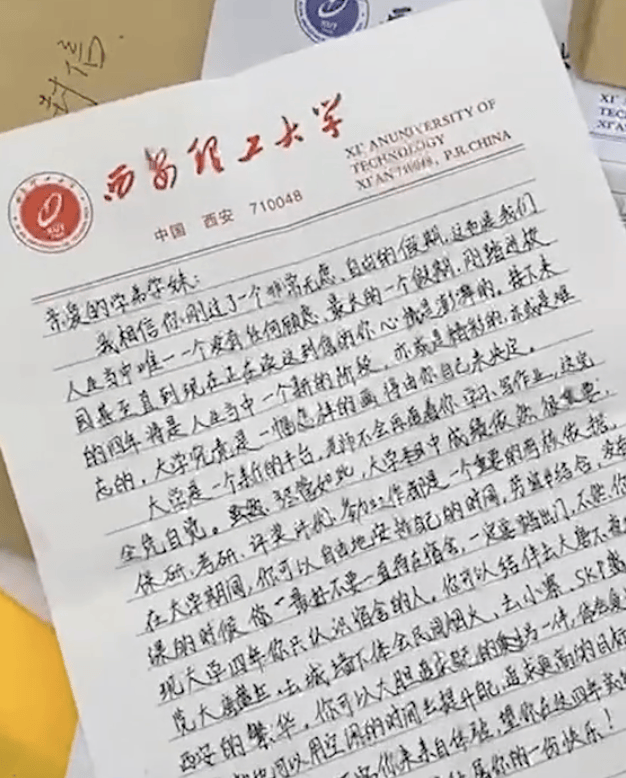 封信
西安理工大学
XI'ANUNIVERSITY OF
TECHNOLOGY
XI'AN 710048, P.R.CHINA
中国 西安 710048
亲爱的学弟学妹:
我相信你刚过了一个非常无虑、自由的假期,这也是我们
人生当中唯一一个没有任何顾虑、最长的一个假期,刚踏进校
园甚至直到现在正在读这封信的你心情是澎湃的。接下来
的四年将是人生当中一个新的阶段,亦或是精彩的,亦或是难
忘的,大学究竟是一幅怎样的画得由你自己来决定。
大学是一个新的平台,老师不会再逼着你学习、写作业,这完
全凭自觉。虽然 尽管如此,大学期中成绩依然很重要,
保研、考研、评奖片状、参加工作都是一个重要的考核依据。
在大学期间,你可以自由地安排自己的时间,劳逸结合,没有
课的时候你最好不要一直待在宿舍,一定要踏出门,不然你
现大学四年你只认识宿舍的人。你可以结伴去大唐不夜
去城墙下体会民间烟火,去小寨、SKP
西安的繁华。你可以大胆
可以用空闲的时间去提升自己,追求更高的目标
你来亲自体验,望你在这四年
你的一份快乐!
XI'AN
TECH
XI'AN